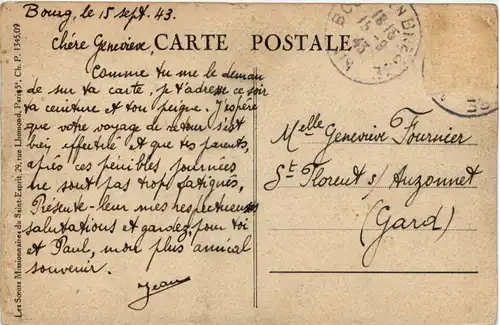 Bourg, le 15 sept. 43.
Chère Geneviève,
CARTE POSTALE
Comme tu me le deman
de sur ta carte, je t'adresse ce soir
ta ceinture et ton peigne. J'espère
que votre voyage de retour s'est
bein effectué et que tes parents,
après ces pénibles journées
ne sont pas trop fatigués,
Présente-leur mes respectueuses
salutations et gardez, pour toi
et Paul, mon plus amical
souvenir.
Jean
Melle Geneviève Fournier
St Florent s/ Auzonnet
(Gard)
Les Sœurs Missionnaires du Saint-Esprit, 29, rue Lhomond, Paris-5e. Ch. P. 1345.09